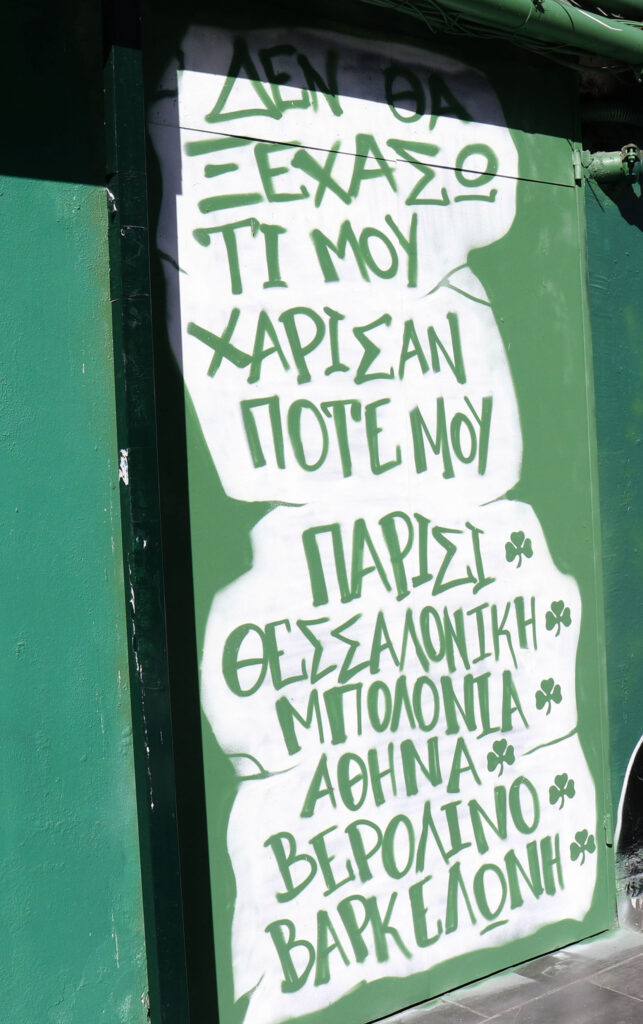 ΔΕΝ ΘΑ
ΞΕΧΑΣΩ
ΤΙ ΜΟΥ
ΧΑΡΙΣΑΝ
ΠΟΤΕ ΜΟΥ
ΠΑΡΙΣΙ
ΘΕΣΣΑΛΟΝΙΚΗ
ΜΠΟΛΟΝΙΑ
ΑΘΗΝΑ
ΒΕΡΟΛΙΝΟ
ΒΑΡΚΕΛΩΝΗ